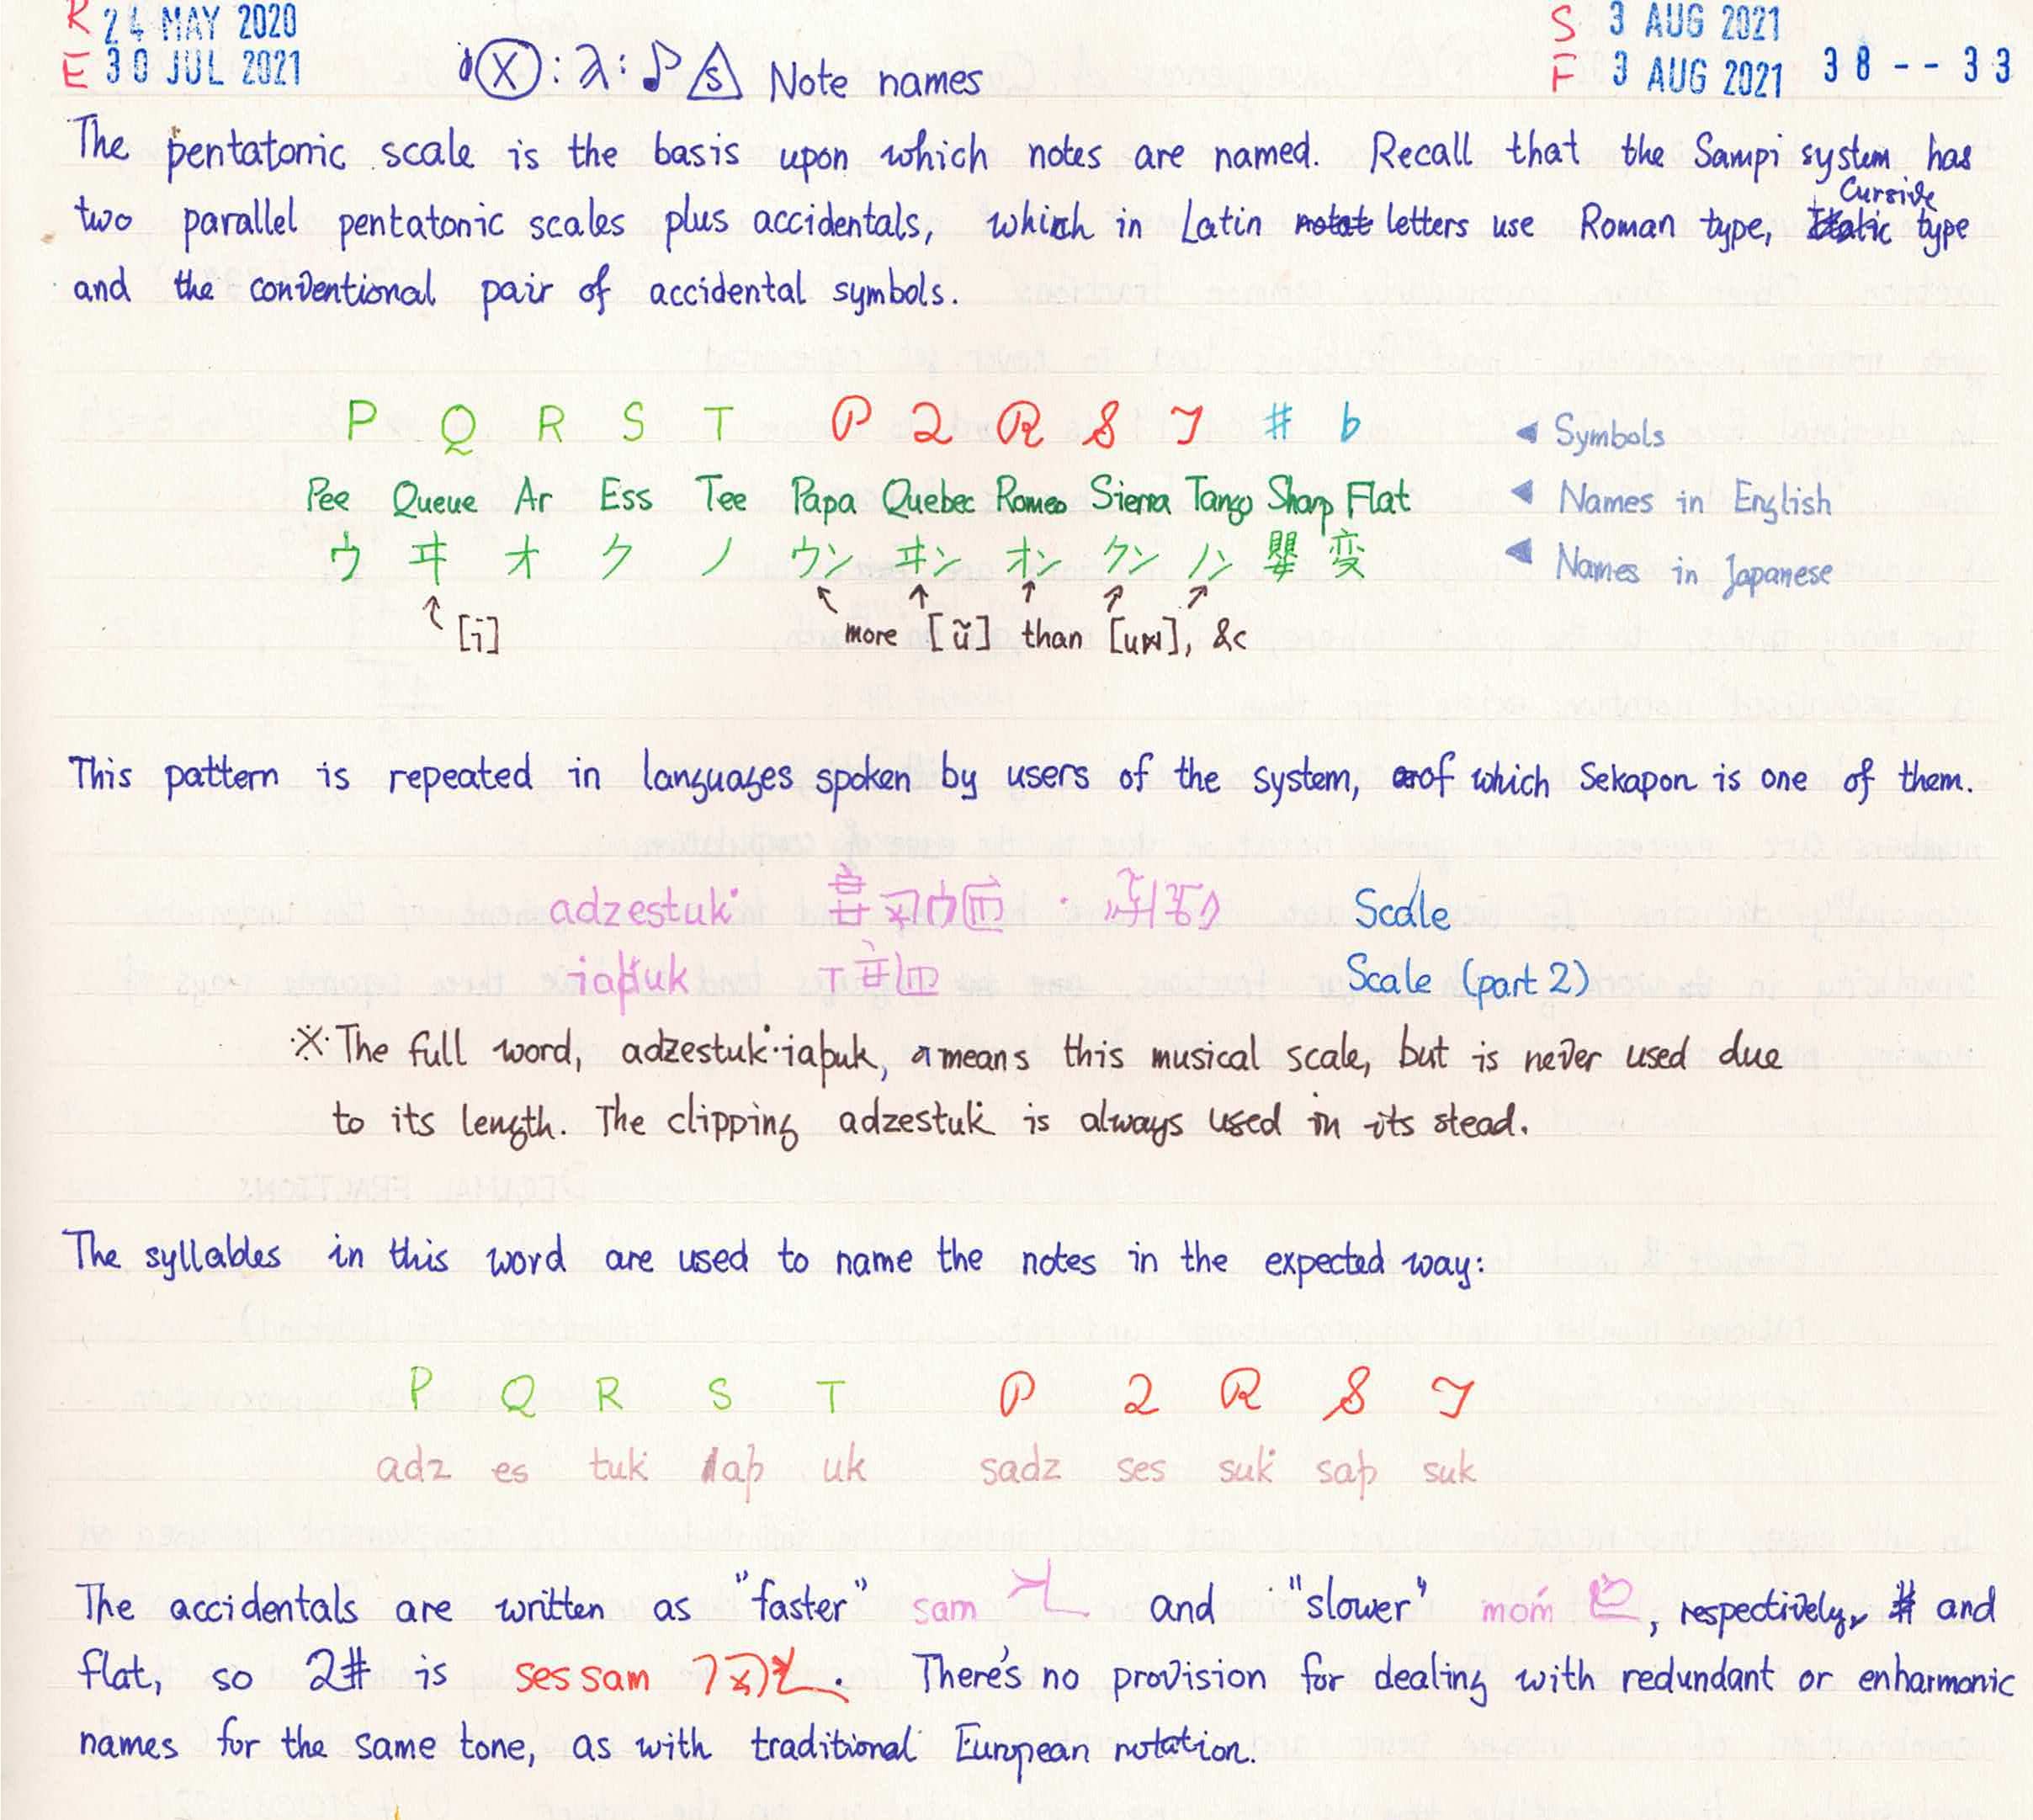 R 24 MAY 2020
E 30 JUL 2021
S 3 AUG 2021
F 3 AUG 2021 38--33
Note names
The pentatonic scale is the basis upon which notes are named. Recall that the Sampi system has
two parallel pentatonic scales plus accidentals, which in Latin letters use Roman type, Cursive type
and the conventional pair of accidental symbols.
P Q R S T P Q R S T # b ◀ Symbols
Pee Queue Ar Ess Tee Papa Quebec Romeo Sierra Tango Sharp Flat ◀ Names in English
ウ ヰ オ ク ノ ウン ヰン オン クン ノン 嬰 変 ◀ Names in Japanese
[i] more [ũ] than [uɴ], &c
This pattern is repeated in languages spoken by users of the system, of which Sekapon is one of them.
adzestuk̇ Scale
iaþuk Scale (part 2)
※ The full word, adzestuk̇·iaþuk, means this musical scale, but is never used due
to its length. The clipping adzestuk̇ is always used in its stead.
The syllables in this word are used to name the notes in the expected way:
P Q R S T P Q R S T
adz es tuk̇ iaþ uk sadz ses suk̇ saþ suk
The accidentals are written as "faster" sam and "slower" moḿ, respectively, # and
flat, so Q# is ses sam. There's no provision for dealing with redundant or enharmonic
names for the same tone, as with traditional European notation.